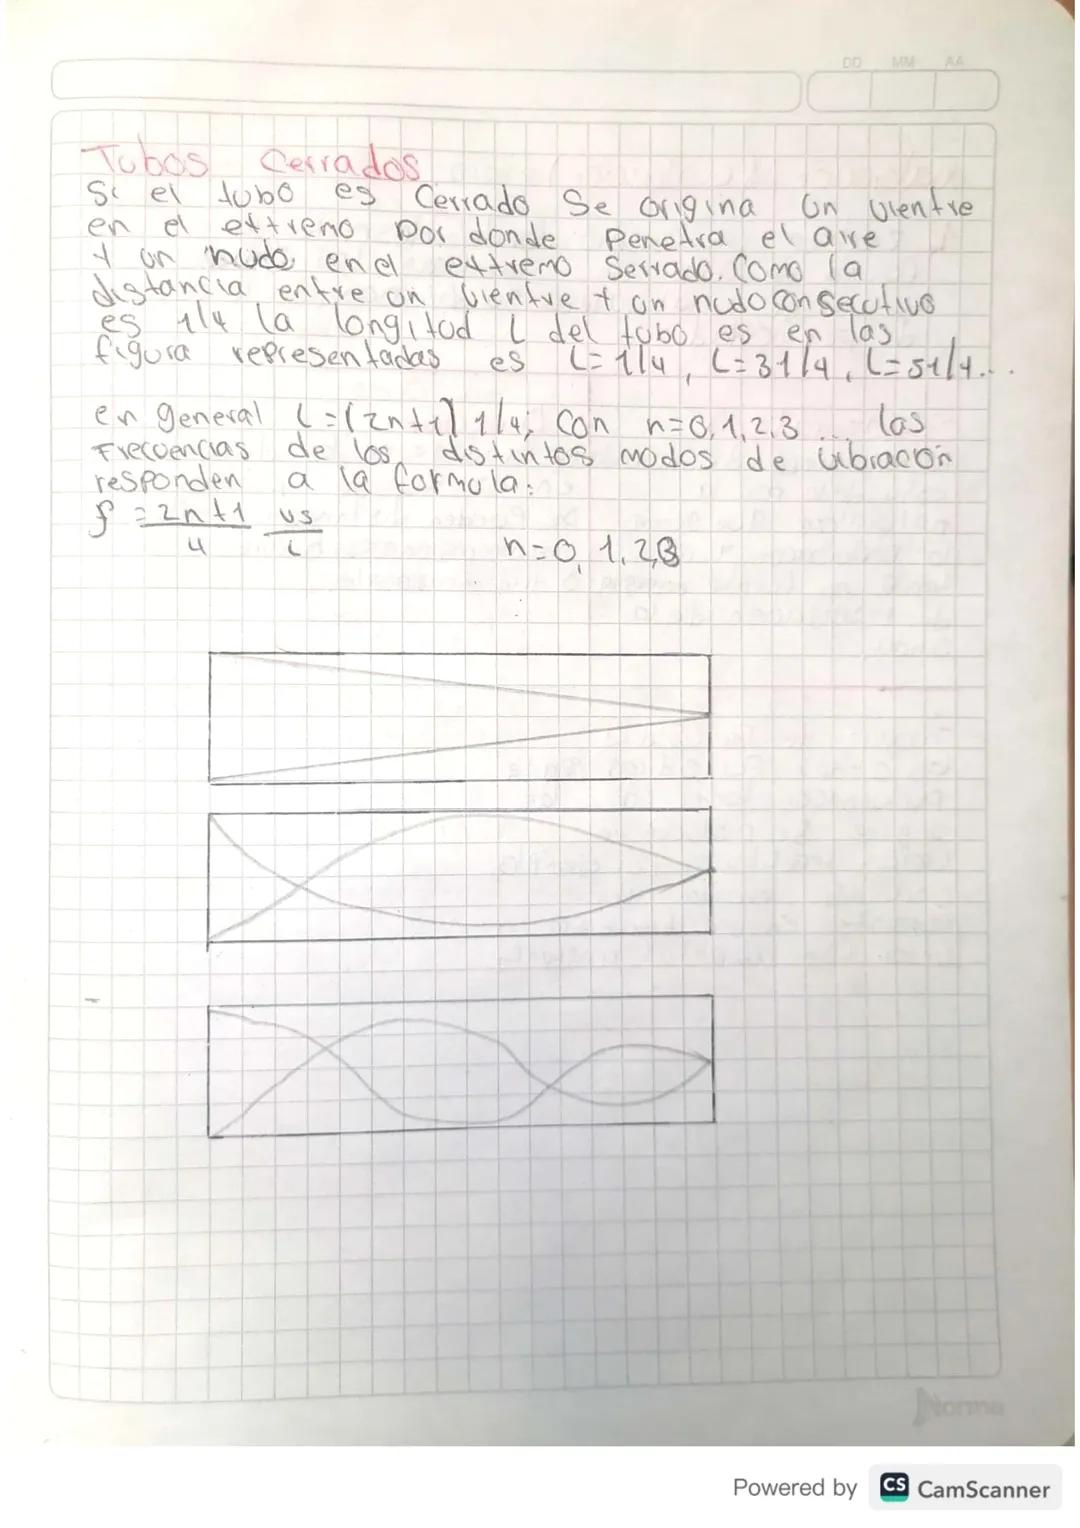 DD MM AA
Tubos Cerrados
Si el tubo es Cerrado Se origina un vientre
en el extremo por donde penetra el aire
y un nudo en el extremo Serrado. Como la
distancia entre un vientre y un nudo consecutivo
es 1/4 la longitud L del tubo es en las
figura representadas es L=1/4, L=31/4, L=51/4...
en general L=(2n+1) 1/4; Con n=0,1,2,3... las
Frecuencias de los distintos modos de vibración
responden a la formula:
f = 2n+1 vs
4 L n=0, 1, 2, 3
Norma
Powered by CS CamScanner